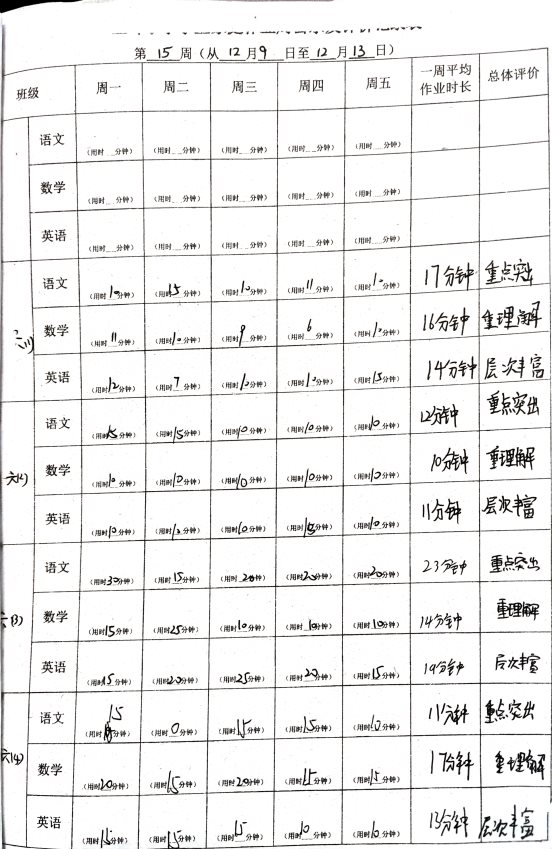 第 15 周（从 12 月 9 日至 12 月 13 日）
班级 周一 周二 周三 周四 周五 一周平均作业时长 总体评价
语文 （用时 分钟） （用时 分钟） （用时 分钟） （用时 分钟） （用时 分钟）
数学 （用时 分钟） （用时 分钟） （用时 分钟） （用时 分钟） （用时 分钟）
英语 （用时 分钟） （用时 分钟） （用时 分钟） （用时 分钟） （用时 分钟）
语文 （用时10分钟） （用时15分钟） （用时10分钟） （用时11分钟） （用时10分钟） 17分钟 重点突出
数学 （用时11分钟） （用时10分钟） （用时9分钟） （用时6分钟） （用时10分钟） 16分钟 重理解
英语 （用时12分钟） （用时7分钟） （用时10分钟） （用时10分钟） （用时15分钟） 14分钟 层次丰富
语文 （用时15分钟） （用时15分钟） （用时10分钟） （用时10分钟） （用时10分钟） 12分钟 重点突出
数学 （用时10分钟） （用时10分钟） （用时10分钟） （用时10分钟） （用时10分钟） 10分钟 重理解
英语 （用时10分钟） （用时12分钟） （用时10分钟） （用时 分钟） （用时10分钟） 11分钟 层次丰富
六(3) 语文 （用时30分钟） （用时15分钟） （用时20分钟） （用时20分钟） （用时20分钟） 23分钟 重点突出
数学 （用时15分钟） （用时25分钟） （用时10分钟） （用时10分钟） （用时10分钟） 14分钟 重理解
英语 （用时15分钟） （用时20分钟） （用时25分钟） （用时20分钟） （用时15分钟） 19分钟 层次丰富
六(4) 语文 （用时15分钟） （用时0分钟） （用时15分钟） （用时15分钟） （用时10分钟） 11分钟 重点突出
数学 （用时20分钟） （用时15分钟） （用时20分钟） （用时15分钟） （用时15分钟） 17分钟 重理解
英语 （用时15分钟） （用时15分钟） （用时15分钟） （用时10分钟） （用时10分钟） 13分钟 层次丰富